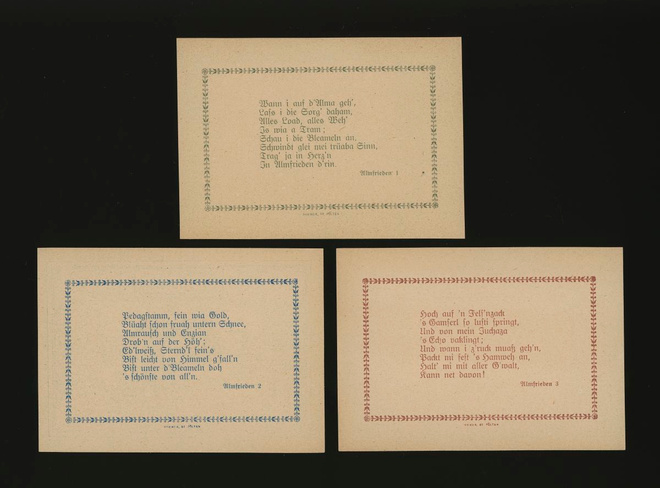 Wann i auf d'Alma geh',
Lass i die Sorg' daham,
Alles Load, alles Weh'
Is wia a Tram;
Schau i die Bleameln an,
Schwindt glei mei trüaba Sinn,
Trag' ja in Herz'n
In Almfrieden d'rin.
Almfrieden 1
Pedagstamm, fein wia Gold,
Blüaht schon fruah untern Schnee,
Almrausch und Enzian
Drob'n auf der Höh';
Ed'lweiß, Sternd'l fein's
Bist leicht von Himmel g'fall'n
Bist unter d'Bleameln doh
's schönste von all'n.
Almfrieden 2
Hoch auf 'n Fels'nzack
's Gamserl so lusti springt,
Und von mein Juchaza
's Echo vaklingt;
Und wann i z'ruck muaß geh'n,
Packt mi fest 's Hamweh an,
Halt' mi mit aller G'walt,
Kann net davon!
Almfrieden 3